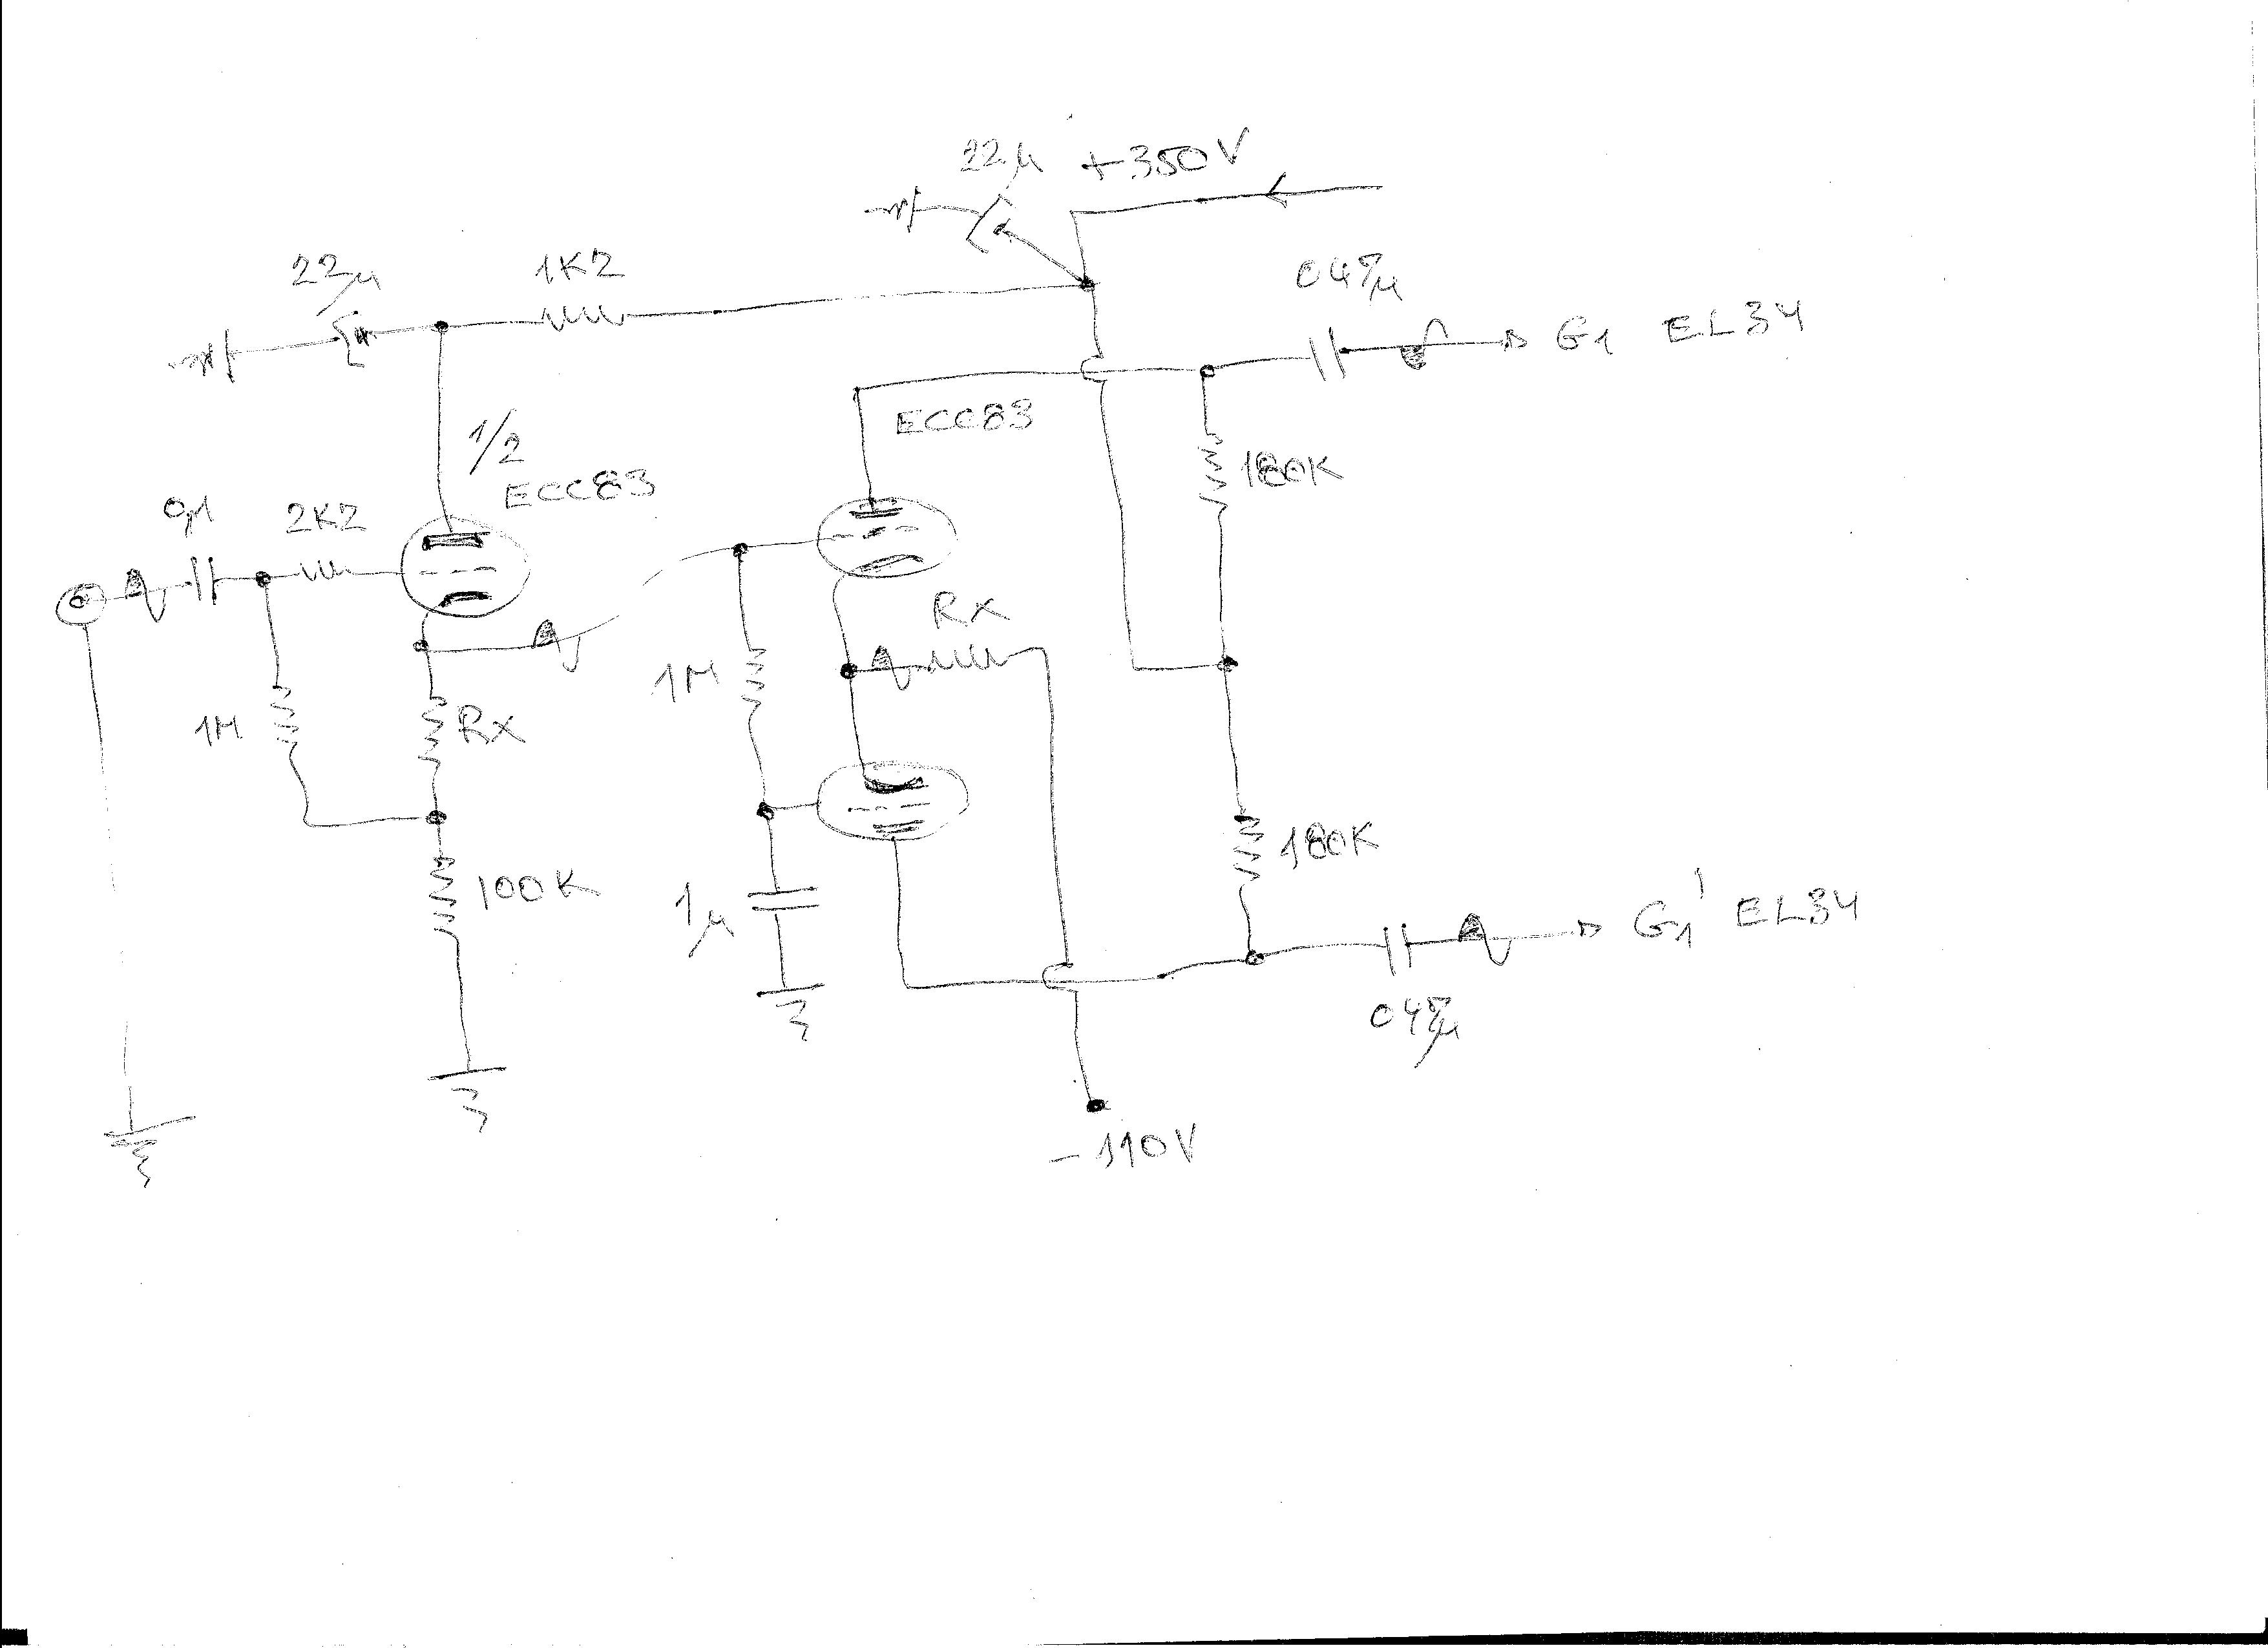 22µ +350V
22µ 1K2
047µ
G1 EL34
1/2
ECC83
ECC83
180K
0,1 2K2
Rx
1M
1M Rx
180K
100K
1µ
G1' EL34
047µ
-110V